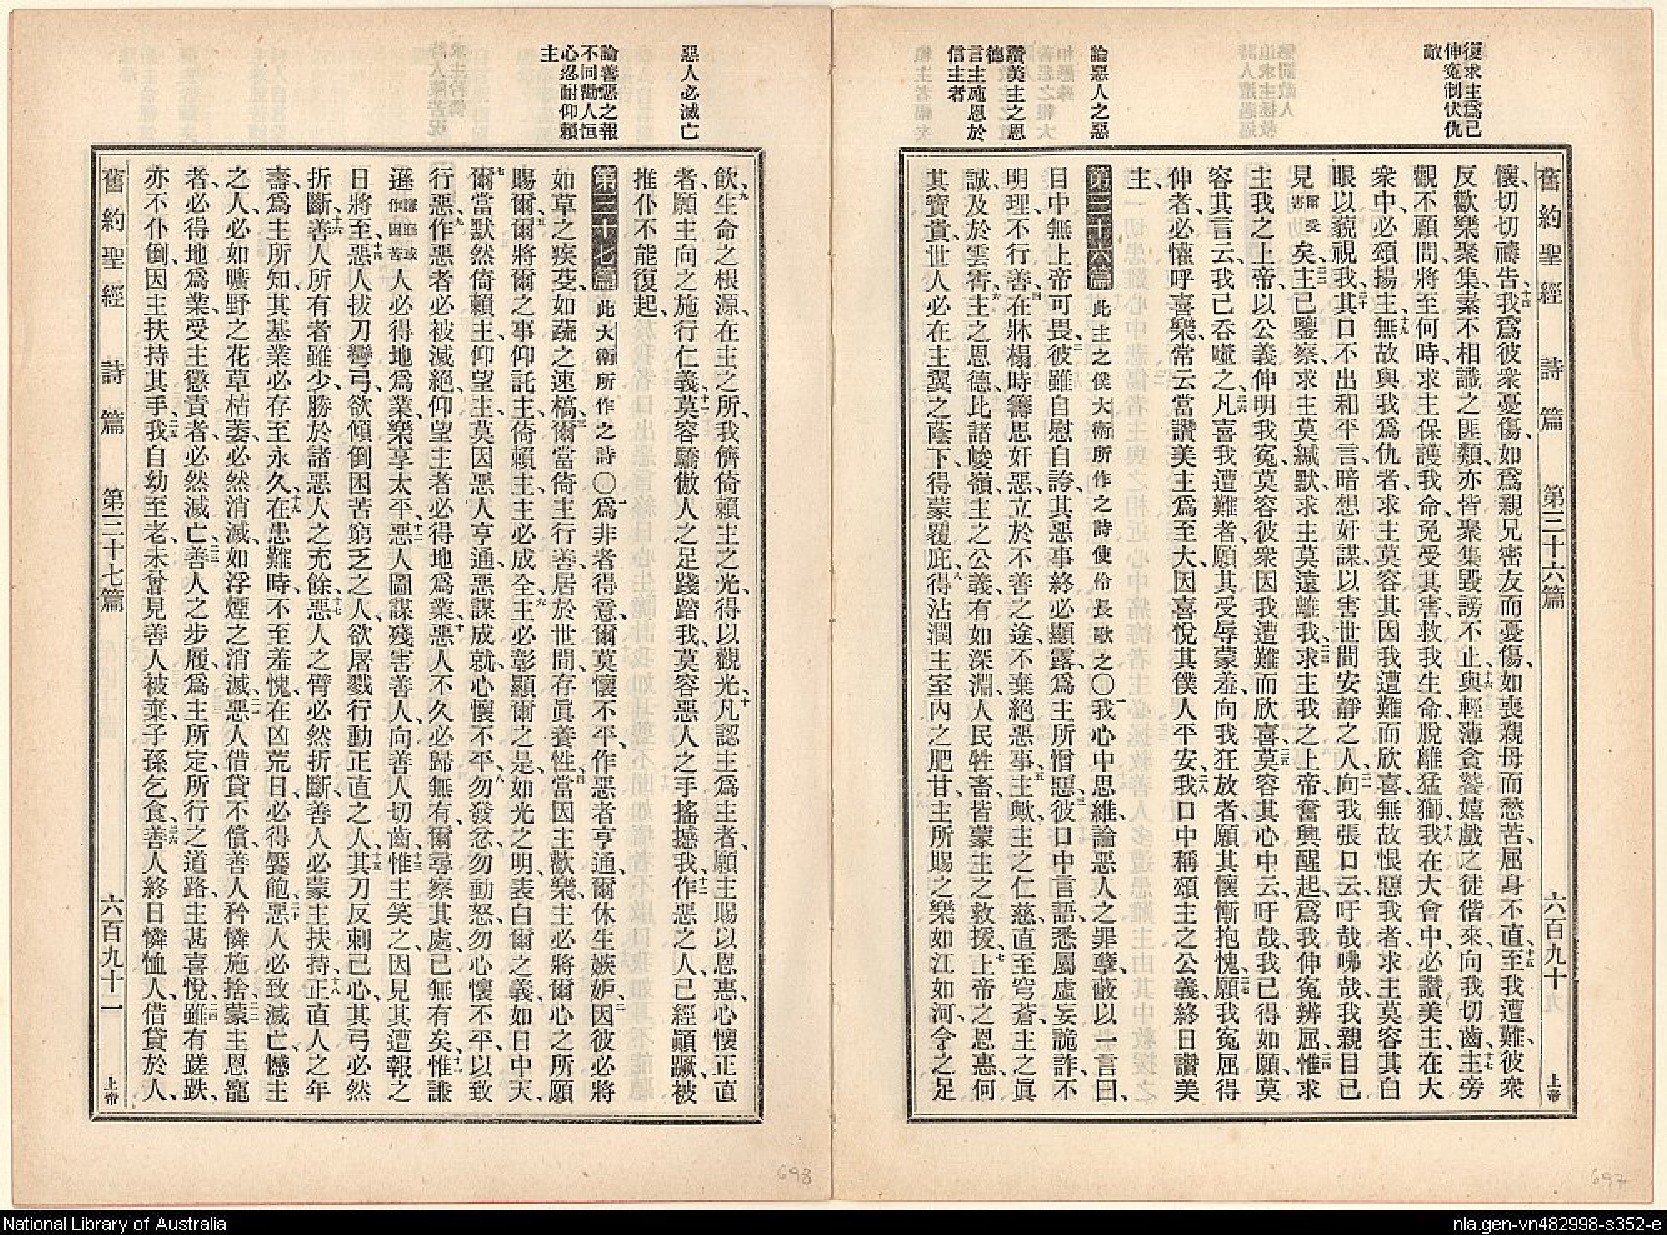 復求主爲己
伸冤制伏仇
敵
論惡人之惡
讚美主之恩
德
言主施恩於
信主者
舊約聖經 詩篇 第三十六篇 六百九十 上帝
懷切切禱告我爲彼衆憂傷如爲親兄密友而憂傷如喪親母而愁苦屈身不直至我遭難彼衆
反歡樂聚集素不相識之匪類亦皆聚集毀謗不止與輕薄貪饕嬉戲之徒偕來向我切齒主旁
觀不顧問將至何時求主保護我命免受其害救我生命脫離猛獅我在大會中必讚美主在大
衆中必頌揚主無故與我爲仇者求主莫容其因我遭難而欣喜無故恨惡我者求主莫容其白
眼以藐視我其口不出和平言暗想奸謀以害世間安靜之人向我張口云吁哉咈哉我親目已
見爾受害矣主已鑒察求主莫緘默求主莫遠離我求主我之上帝奮興醒起爲我伸冤辨屈惟求
主我之上帝以公義伸明我冤莫容彼衆因我遭難而欣喜莫容其心中云吁哉我已得如願莫
容其言云我已吞噬之凡喜我遭難者願其受辱蒙羞向我狂放者願其懷慚抱愧願我冤屈得
伸者必懽呼喜樂常云當讚美主爲至大因喜悅其僕人平安我口中稱頌主之公義終日讚美
主
第三十六篇 此主之僕大衛所作之詩使伶長歌之〇我心中思維論惡人之罪孽蔽以一言曰
目中無上帝可畏彼雖自慰自誇其惡事終必顯露爲主所憎惡彼口中言語悉屬虛妄詭詐不
明理不行善在牀榻時籌思奸惡立於不善之途不棄絕惡事主歟主之仁慈直至穹蒼主之眞
誠及於雲霄主之恩德比諸峻嶺主之公義有如深淵人民牲畜皆蒙主之救援上帝之恩惠何
其寶貴世人必在主翼之蔭下得蒙覆庇得沾潤主室內之肥甘主所賜之樂如江如河令之足
697
惡人必滅亡
論善惡之報
不同勸人恒
心忍耐仰賴
主
飲生命之根源在主之所我儕倚賴主之光得以觀光凡認主爲主者願主賜以恩惠心懷正直
者願主向之施行仁義莫容驕傲人之足踐踏我莫容惡人之手搖撼我作惡之人已經顚蹶被
推仆不能復起
第三十七篇 此大衛所作之詩〇爲非者得意爾莫懷不平作惡者亨通爾休生嫉妒因彼必將
如草之疾芟如蔬之速槁爾當倚主行善居於世間存眞養性當因主歡樂主必將爾心之所願
賜爾爾將爾之事仰託主倚賴主主必成全主必彰顯爾之是如光之明表白爾之義如日中天
爾當默然倚賴主仰望主莫因惡人亨通惡謀成就心懷不平勿發忿勿動怒勿心懷不平以致
行惡作惡者必被滅絕仰望主者必得地爲業惡人不久必歸無有爾尋察其處已無有矣惟謙
遜謙遜或作困苦人必得地爲業樂享太平惡人圖謀殘害善人向善人切齒惟主笑之因見其遭報之
日將至惡人拔刀彎弓欲傾倒困苦窮乏之人欲屠戮行動正直之人其刀反刺己心其弓必然
折斷善人所有者雖少勝於諸惡人之充餘惡人之臂必然折斷善人必蒙主扶持正直人之年
壽爲主所知其基業必存至永久在患難時不至羞愧在凶荒日必得饜飽惡人必致滅亡憾主
之人必如曠野之花草枯萎必然消滅如浮煙之消滅惡人借貸不償善人矜憐施捨蒙主恩寵
者必得地爲業受主懲責者必然滅亡善人之步履爲主所定所行之道路主甚喜悅雖有蹉跌
亦不仆倒因主扶持其手我自幼至老未曾見善人被棄子孫乞食善人終日憐恤人借貸於人
舊約聖經 詩篇 第三十七篇 六百九十一 上帝
698
National Library of Australia
nla.gen-vn482998-s352-e